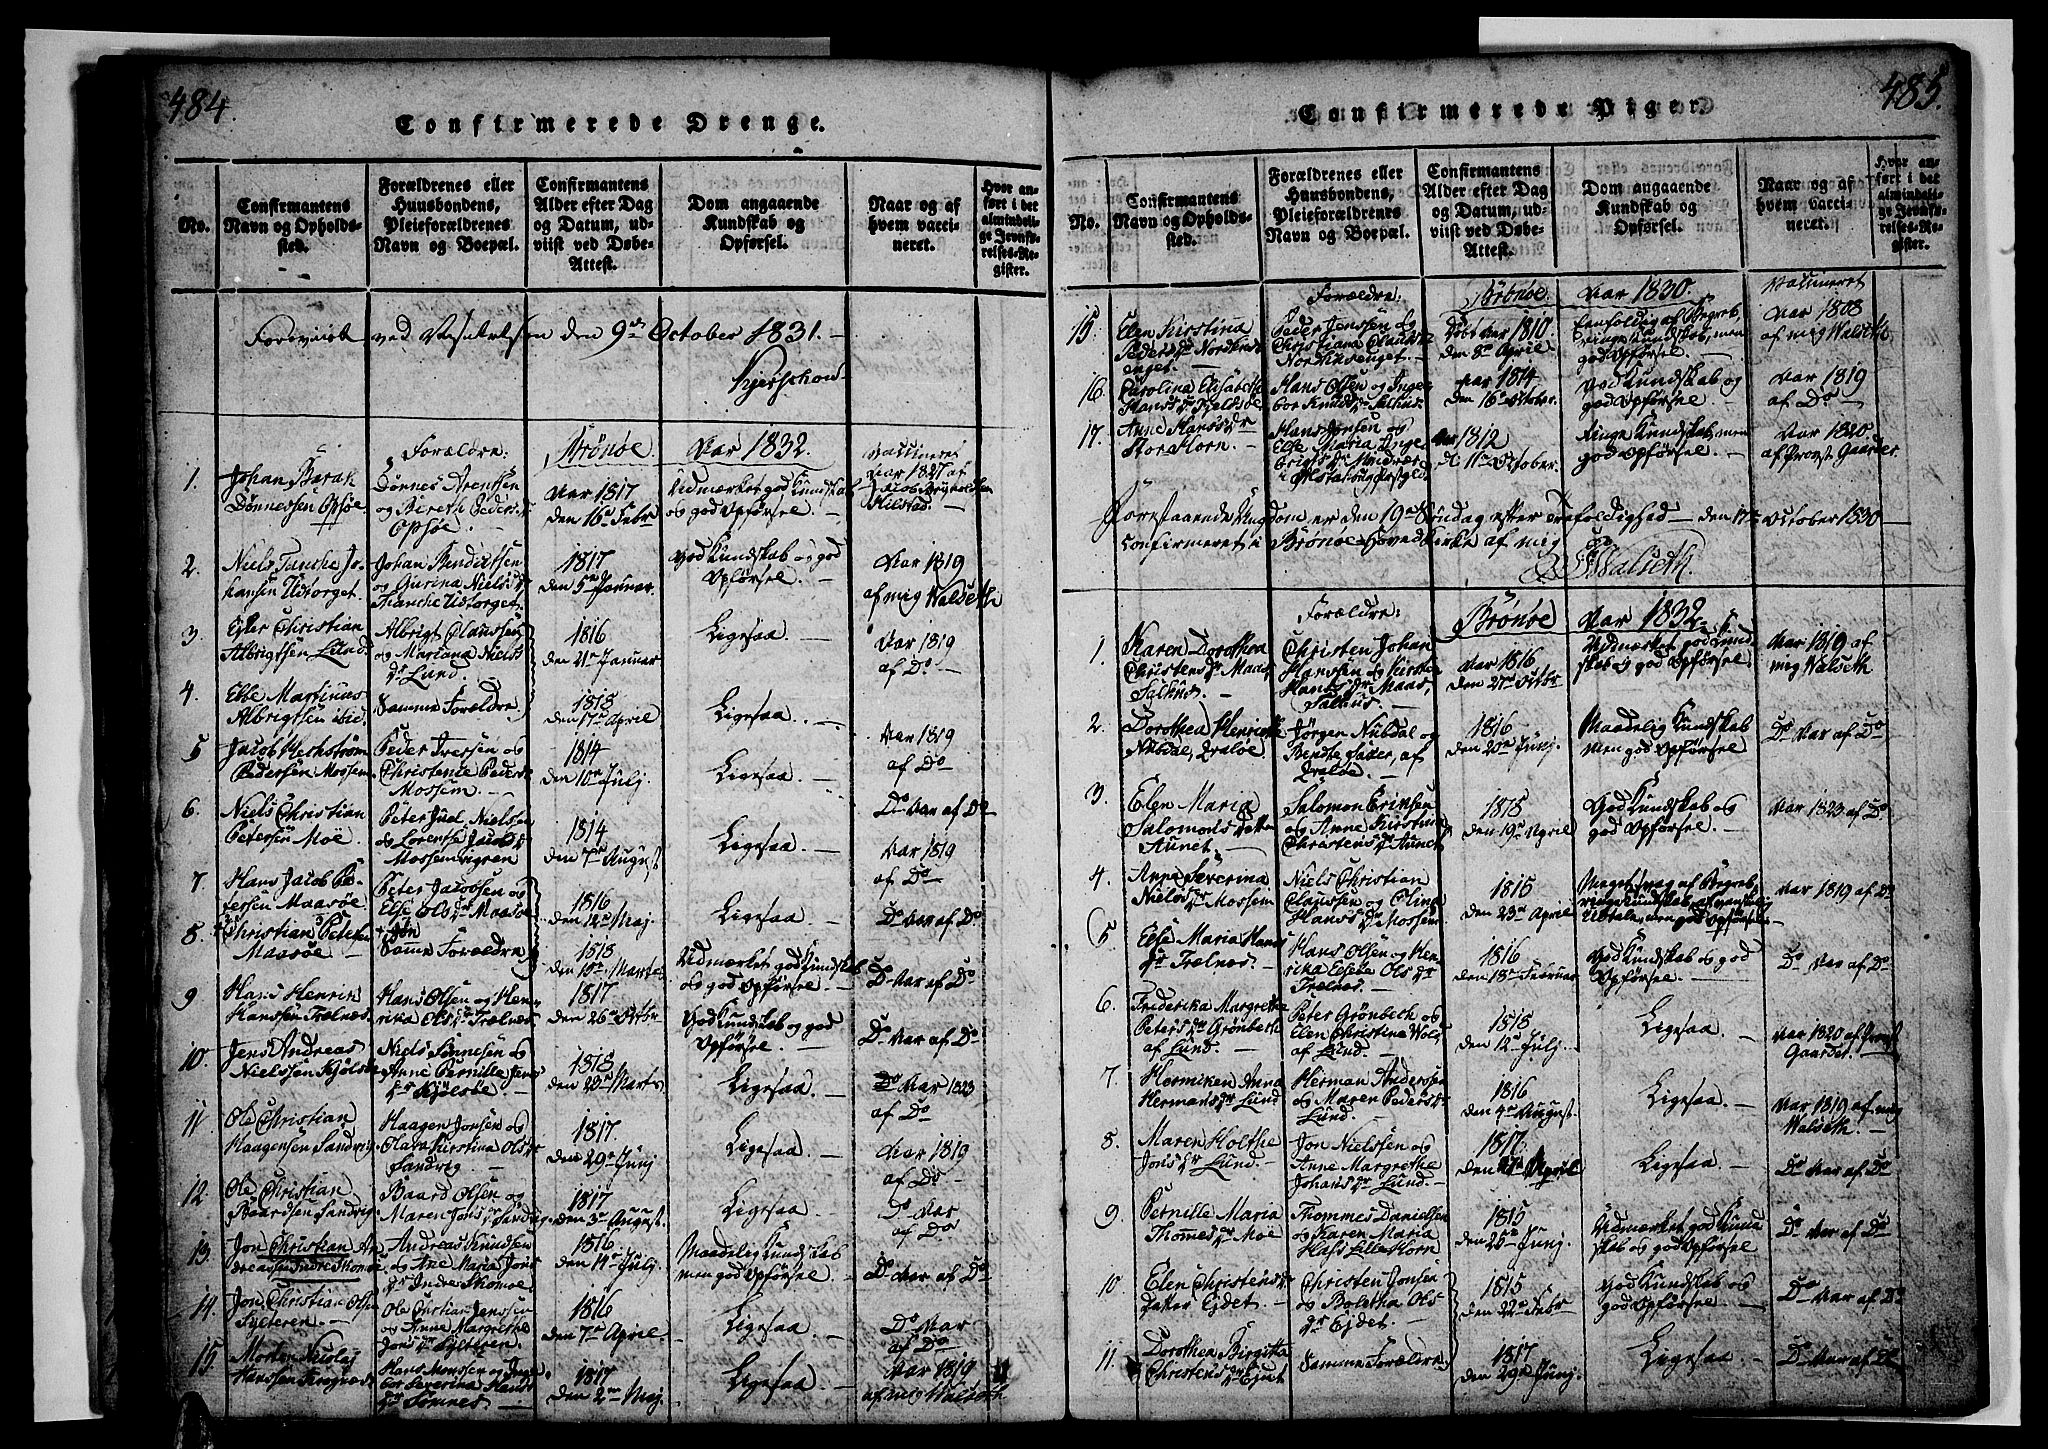 484.
Confirmerede Drenge.
No.
Confirmantens
Navn og Opholds-
sted.
Forældrenes eller
Huusbondens,
Pleieforældrenes
Navn og Boepæl.
Confirmantens
Alder efter Dag
og Datum, ud-
viist ved Døbe-
Attest.
Dom angaaende
Kundskab og
Opførsel.
Naar og af
hvem vacci-
neret.
Hvor an-
ført i det
almindeli-
ge Jevnfø-
relses-Re-
gister.
Foreviist ved Visitatsen den 9de October 1831.
Forældre: Brønøe Aar 1832. Vaccineret
1.
Johan Barak
Dønnessen Opsøe.
Dønnes Arentsen
og Bereth Peders dr
Opsøe
Aar 1817
den 16de Febr
Udmærket god Kundskab
og god Opførsel.
Aar 1827 af
Jacob Brynholdsen
Hilstad.
2.
Niels Tanche Jo-
hansen Udtorget.
Johan Bendictsen
og Gurina Niels dr
Tanche Udtorget.
1817
den 5te Januar.
God Kundskab og god
Opførsel.
Aar 1819
af mig Walseth
3.
Ejler Christian
Albrigtsen Lund.
Albrigt Claussen
og Mariana Niels
dr Lund.
1816
den 21de Januar
Ligesaa.
Aar 1819
af Do
4.
Ebbe Martinus
Albrigtsen ibid.
Samme Forældre
1818
den 17de April
Ligesaa.
Aar 1819
af Do
5
Jacob Heckstrøm
Pedersen Mossem.
Peder Iversen og
Christence Peders dr
Mossem.
1814
den 10de Julj.
Ligesaa
Do Aar af Do
6.
Niels Christian
Petersen Moe.
Peter Jud Nielsen
og Lorentse Jacobs dr
Mossemvigren
1814
den 7de August
Ligesaa.
Aar 1819
af Do
7.
Hans Jacob Pe-
tersen Maasøe
Peter Jacobsen og
Else Ols dr Maasøe
1816
den 12te Maj.
Ligesaa.
Do Aar af Do
8.
Christian Petersen
Maasøe
Samme Forældre
1818
den 10de Marts.
Udmærket god Kundskab
og god Opførsel.
Do Aar af Do
9
Hans Henrik
Hanssen Trælnes.
Hans Olsen og Hen-
rika Ols dr Trælnes
1817
den 26de Octbr
God Kundskab og god
Opførsel.
Do Aar af Do
10.
Jens Andreas
Nielssen Kjølsøe
Niels Sønnesen og
Anne Pernille Jens
dr Kjølsøe
1818
den 23de Marts
Ligesaa.
Do Aar 1823
af Do
11
Ole Christian
Haagensen Sandvig.
Haagen Jonsen og
Olava Kirstina Ols dr
Sandvig
1817.
den 29de Junj
Ligesaa.
Aar 1819
af Do
12
Ole Christian
Baardsen Sandvig
Baard Olsen og
Maren Jons dr Sandvig
1817
den 3de August.
Ligesaa.
Do Aar
af Do
13.
Jon Christian An-
dreassen Indre Thomøe
Andreas Knudsen
og Ane Maria Jons
dr Indre Thomøe
1816
den 14de Julj
Maadelig Kundskab
men god Opførsel.
Do Aar af Do
14.
Jon Christian Olsen
Sylteren.
Ole Christian Jenssen
og Anne Margrethe
Jons dr Sylteren.
1816
den 7de April.
Ligesaa.
Do Aar
af Do
15
Morten Nicolaj
Hanssen
Hans Monssen og Inge-
bor Severina Hans
dr Tømnes
1817
den 2den Maj
Ligesaa.
Aar 1819
af mig Walseth
485.
Confirmerede Piger.
No.
Confirmantens
Navn og Opholds-
sted.
Forældrenes eller
Huusbondens,
Pleieforældrenes
Navn og Boepæl.
Confirmantens
Alder efter Dag
og Datum, ud-
viist ved Døbe-
Attest.
Dom angaaende
Kundskab og
Opførsel.
Naar og af
hvem vacci-
neret.
Hvor an-
ført i det
almindeli-
ge Jevnfø-
relses-Re-
gister.
Forældre: Brønøe. Aar 1830. Vaccineret
15.
Elen Kirstina
Peders dr Nordhus-
enget.
Peder Jenssen og
Christiana Claus dr
Nordhusenget.
Døbt Aar 1810.
den 8de April
Eenfoldig af Begreb,
ringe Kundskab, men
god Opførsel.
Aar 1808
af mig Walseth
16.
Carolina Elisabeth
Hans dr Fjeldsøe
Hans Olsen og Inge-
bor Knuds dr Salhus.
Aar 1814
den 16de October.
God Kundskab og
god Opførsel.
Aar 1819
af Do
17.
Anne Hans dr
Stor Horn.
Hans Jonsen og
Else Maria Inge-
brigts dr
Aar 1812
d. 11te October.
Ringe Kundskab, men
god Opførsel.
Aar 1820
af Provst Gaarder
Forestaaende Ungdom er den 19de Søndag efter Trefoldighed – den 17de October 1830
confirmeret i Brønøe Hoved Kirke af mig
Walseth.
Forældre: Brønøe Aar 1832.
1.
Karen Dorothea
Christens dr Maas,
Salhus.
Christen Johan
Hanssen og Kirstine
Hans dr Maas,
Salhus
Aar 1816
den 21de Octbr
Udmærket god Kund-
skab og god Opførsel.
Aar 1819 af
mig Walseth
2.
Dorothea Henriche
Nubdal, Qvaløe.
Jørgen Nubdal og
Bendte Falch, af
Qvaløe
1816
den 20de Junj.
Maadelig Kundskab
men god Opførsel
Do Aar af Do
3.
Elen Maria
Salomons Datter
Aunet.
Salomon Erichsen
og Anne Kirstina
Christens dr Aunet
1818
den 19de April
God Kundskab og
god Opførsel.
Aar 1823 af Do
4.
Anne Severina
Niels dr Mossem
Niels Christian
Claussen og Olina
Hans dr Mossem
1815
den 23de April
Meget svag af Begreb,
ringe Kundskab, af vanskelig
Udtale, men god Opførsel.
Aar 1819 af Do
5
Else Maria Hans
dr Trælnes.
Hans Olsen og Hen-
rika Ols dr
Trælnes.
1816
den 18de Februar
God Kundskab og god
Opførsel.
Do Aar af Do
6.
Friderika Margrethe
Peters dr Grønbech
af Lund.
Peter Grønbech og
Elen Christina Wols
af Lund.
1818
den 12te Julj.
Ligesaa
Aar 1820 af Provst
Gaarder.
7.
Hermiken Anna
Hermans dr Lund
Herman Andersen
og Maren Peders dr
Lund.
1816
den 4de August.
Ligesaa.
Aar 1819 af mig
Walseth.
8.
Maren Holthe
Jons dr Lund.
Jon Nielssen og
Anne Margrethe
Johans dr Lund.
1817
den 27de April
Ligesaa
Do Aar af Do
9
Pernille Maria
Thomes dr Moe
Thommes Danielsen
og Karen Maria
Hass Lille Horn
1815
den 25de Junj.
Udmærket god Kund-
skab og god Opførsel
Do Aar af Do
10
Elen Christens dr
Ejdet.
Christen Jonsen
og Boletha Ols
dr Ejdet.
1815
den 22de Febr
God Kundskab og
god Opførsel
Do Aar af Do
11.
Dorothea Birgitta
Christens dr Ejdet
Samme Forældre
1817
den 29de Junj.
Ligesaa
Do Aar af Do